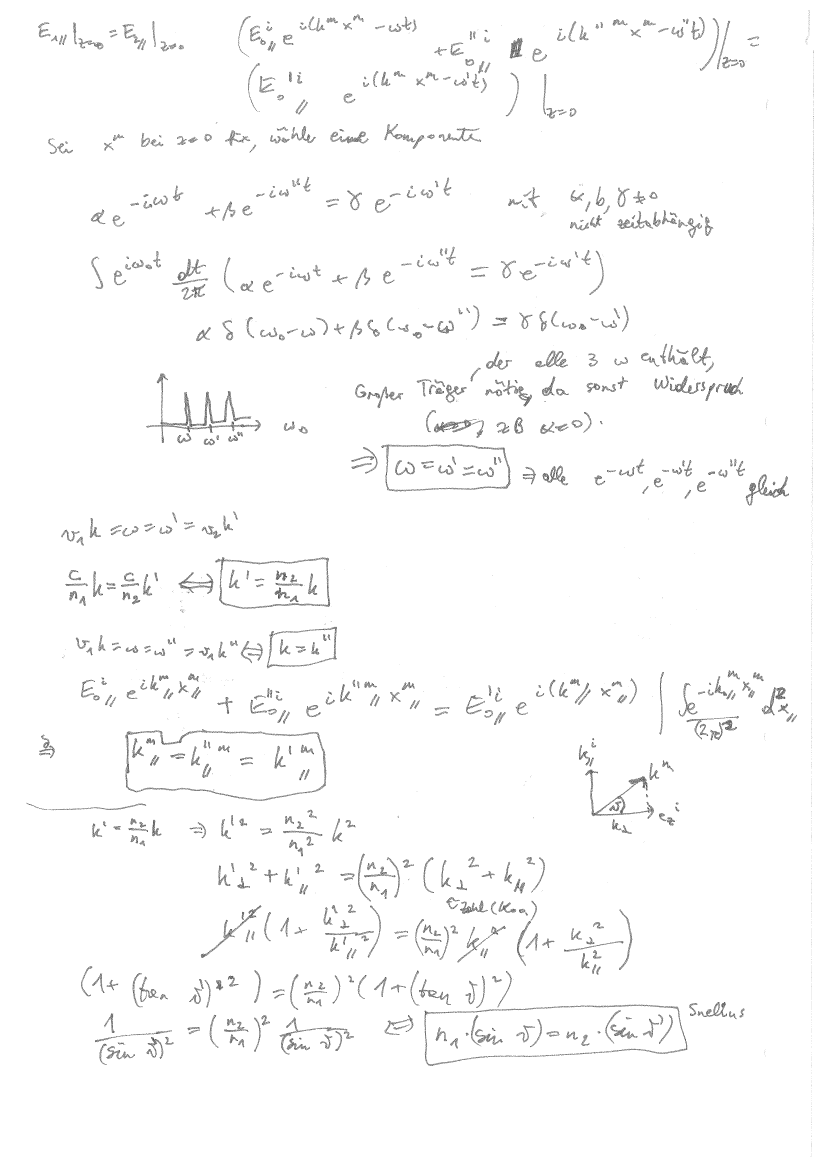 E₁∥|z=0 = E₂∥|z=0 (E₀∥ⁱ e^{i(kᵐxᵐ − ωt)} + E₀∥''ⁱ e^{i(k''ᵐxᵐ − ω''t)})|z=0 =
(E₀∥'ⁱ e^{i(kᵐxᵐ − ω't)})|z=0
Sei xᵐ bei z=0 fix, wähle eine Komponente
α e^{−iωt} + β e^{−iω''t} = γ e^{−iω't} mit α, b, γ ≠ 0
nicht zeitabhängig
∫ e^{iω₀t} dt/2π (α e^{−iωt} + β e^{−iω''t} = γ e^{−iω't})
α δ(ω₀−ω) + β δ(ω₀−ω'') = γ δ(ω₀−ω')
der alle 3 ω enthält,
Großer Träger nötig, da sonst Widerspruch
(zB α=0).
ω ω' ω'' ω₀
⇒ ω = ω' = ω'' ⇒ alle e^{−ωt}, e^{−ω't}, e^{−ω''t} gleich
v₁k = ω = ω' = v₂k'
c/n₁ k = c/n₂ k' ⇔ k' = n₂/n₁ k
v₁k = ω = ω'' = v₁k'' ⇔ k = k''
E₀∥ⁱ e^{ik∥ᵐx∥ᵐ} + E₀∥''ⁱ e^{ik''∥ᵐx∥ᵐ} = E₀∥'ⁱ e^{i(kᵐ∥x∥ᵐ)} | ∫ e^{−ik₀∥ᵐx∥ᵐ}/(2π)² d²x∥
⇒ k∥ᵐ = k∥''ᵐ = k'∥ᵐ
k∥ⁱ kᵐ ϑ k⊥ e_zⁱ
k' = n₂/n₁ k ⇒ k'² = n₂²/n₁² k²
k'⊥² + k'∥² = (n₂/n₁)² (k⊥² + k∥²)
k'∥² (1 + k'⊥²/k'∥²) = (n₂/n₁)² k∥² (1 + k⊥²/k∥²)
(1 + (tan ϑ')^{−2}) = (n₂/n₁)² (1 + (tan ϑ)^{−2})
1/(sin ϑ')² = (n₂/n₁)² 1/(sin ϑ)² ⇔ n₁·(sin ϑ) = n₂·(sin ϑ') Snellius